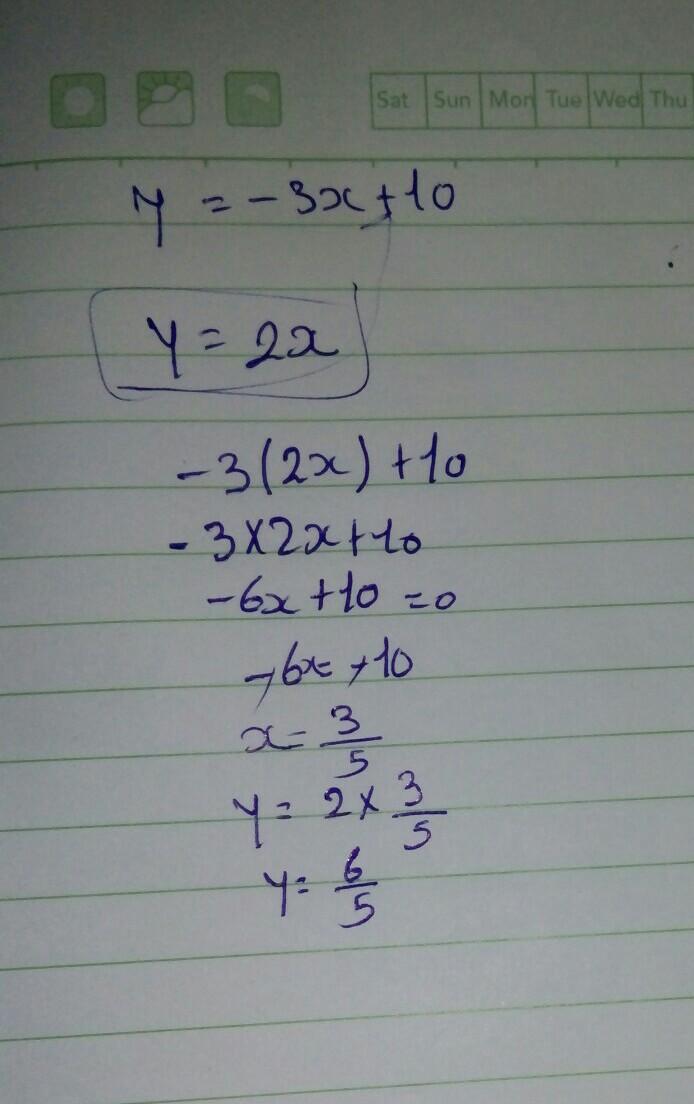 Sat Sun Mon Tue Wed Thu
y = -3x+10
y = 2x
-3(2x)+10
-3×2x+10
-6x+10=0
-6x=+10
x=3/5
y=2×3/5
y=6/5